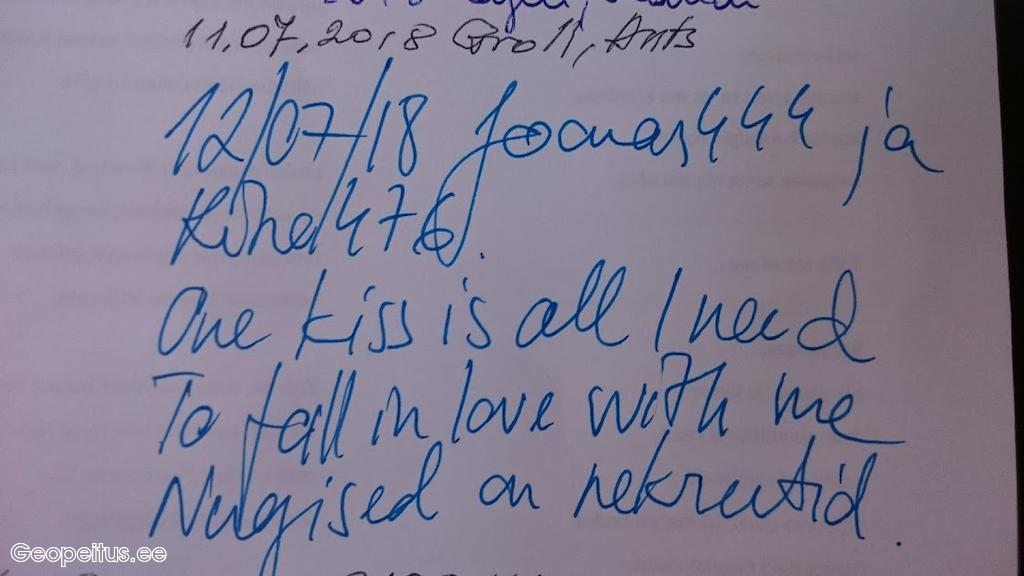 11.07.2018 Groll, Ants
12/07/18 Joonas444 ja
One kiss is all I need
To fall in love with me
Nugised on nekrutid.
Geopeitus.ee